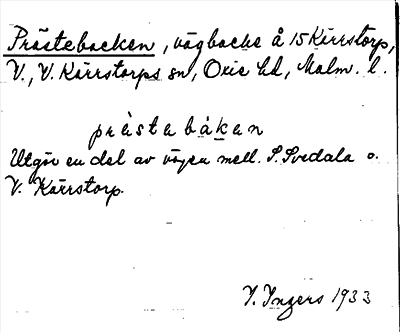 Prästebacken, vägbacke å 15 Kärrstorp,
V., V. Kärrstorps sn, Oxie hd, Malm. l.
prästebåken
Utgör en del av vägen mell. S. Svedala o.
V. Kärrstorp.
I. Ingers 1933